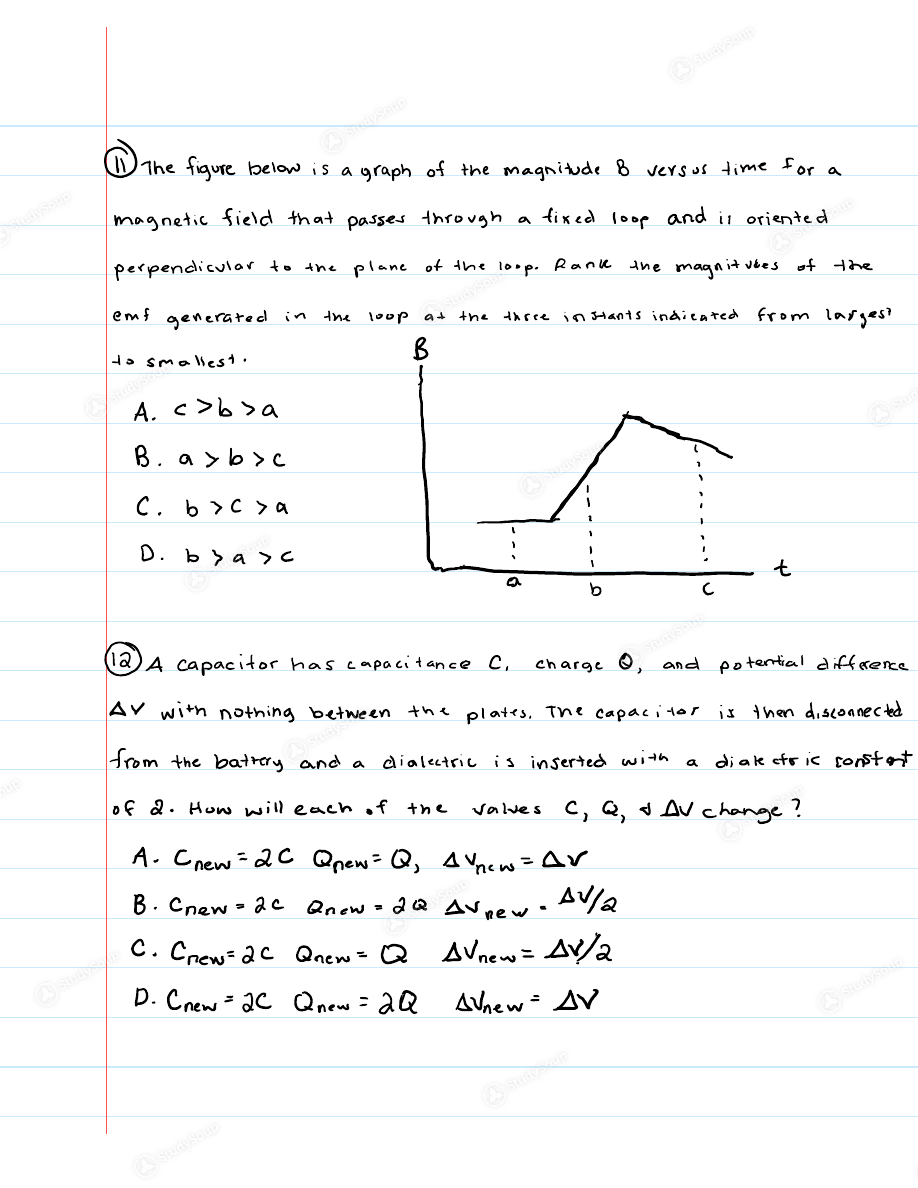 ⑪ The figure below is a graph of the magnitude B versus time for a
magnetic field that passes through a fixed loop and is oriented
perpendicular to the plane of the loop. Rank the magnitudes of the
emf generated in the loop at the three instants indicated from largest
to smallest.
A. c > b > a
B. a > b > c
C. b > c > a
D. b > a > c
B
t
a
b
c
⑫ A capacitor has capacitance C, charge Q, and potential difference
ΔV with nothing between the plates. The capacitor is then disconnected
from the battery and a dialectric is inserted with a dialectric constant
of 2. How will each of the values C, Q, & ΔV change?
A. Cnew = 2C Qnew = Q, ΔVnew = ΔV
B. Cnew = 2C Qnew = 2Q ΔVnew = ΔV/2
C. Cnew = 2C Qnew = Q ΔVnew = ΔV/2
D. Cnew = 2C Qnew = 2Q ΔVnew = ΔV
StudySoup